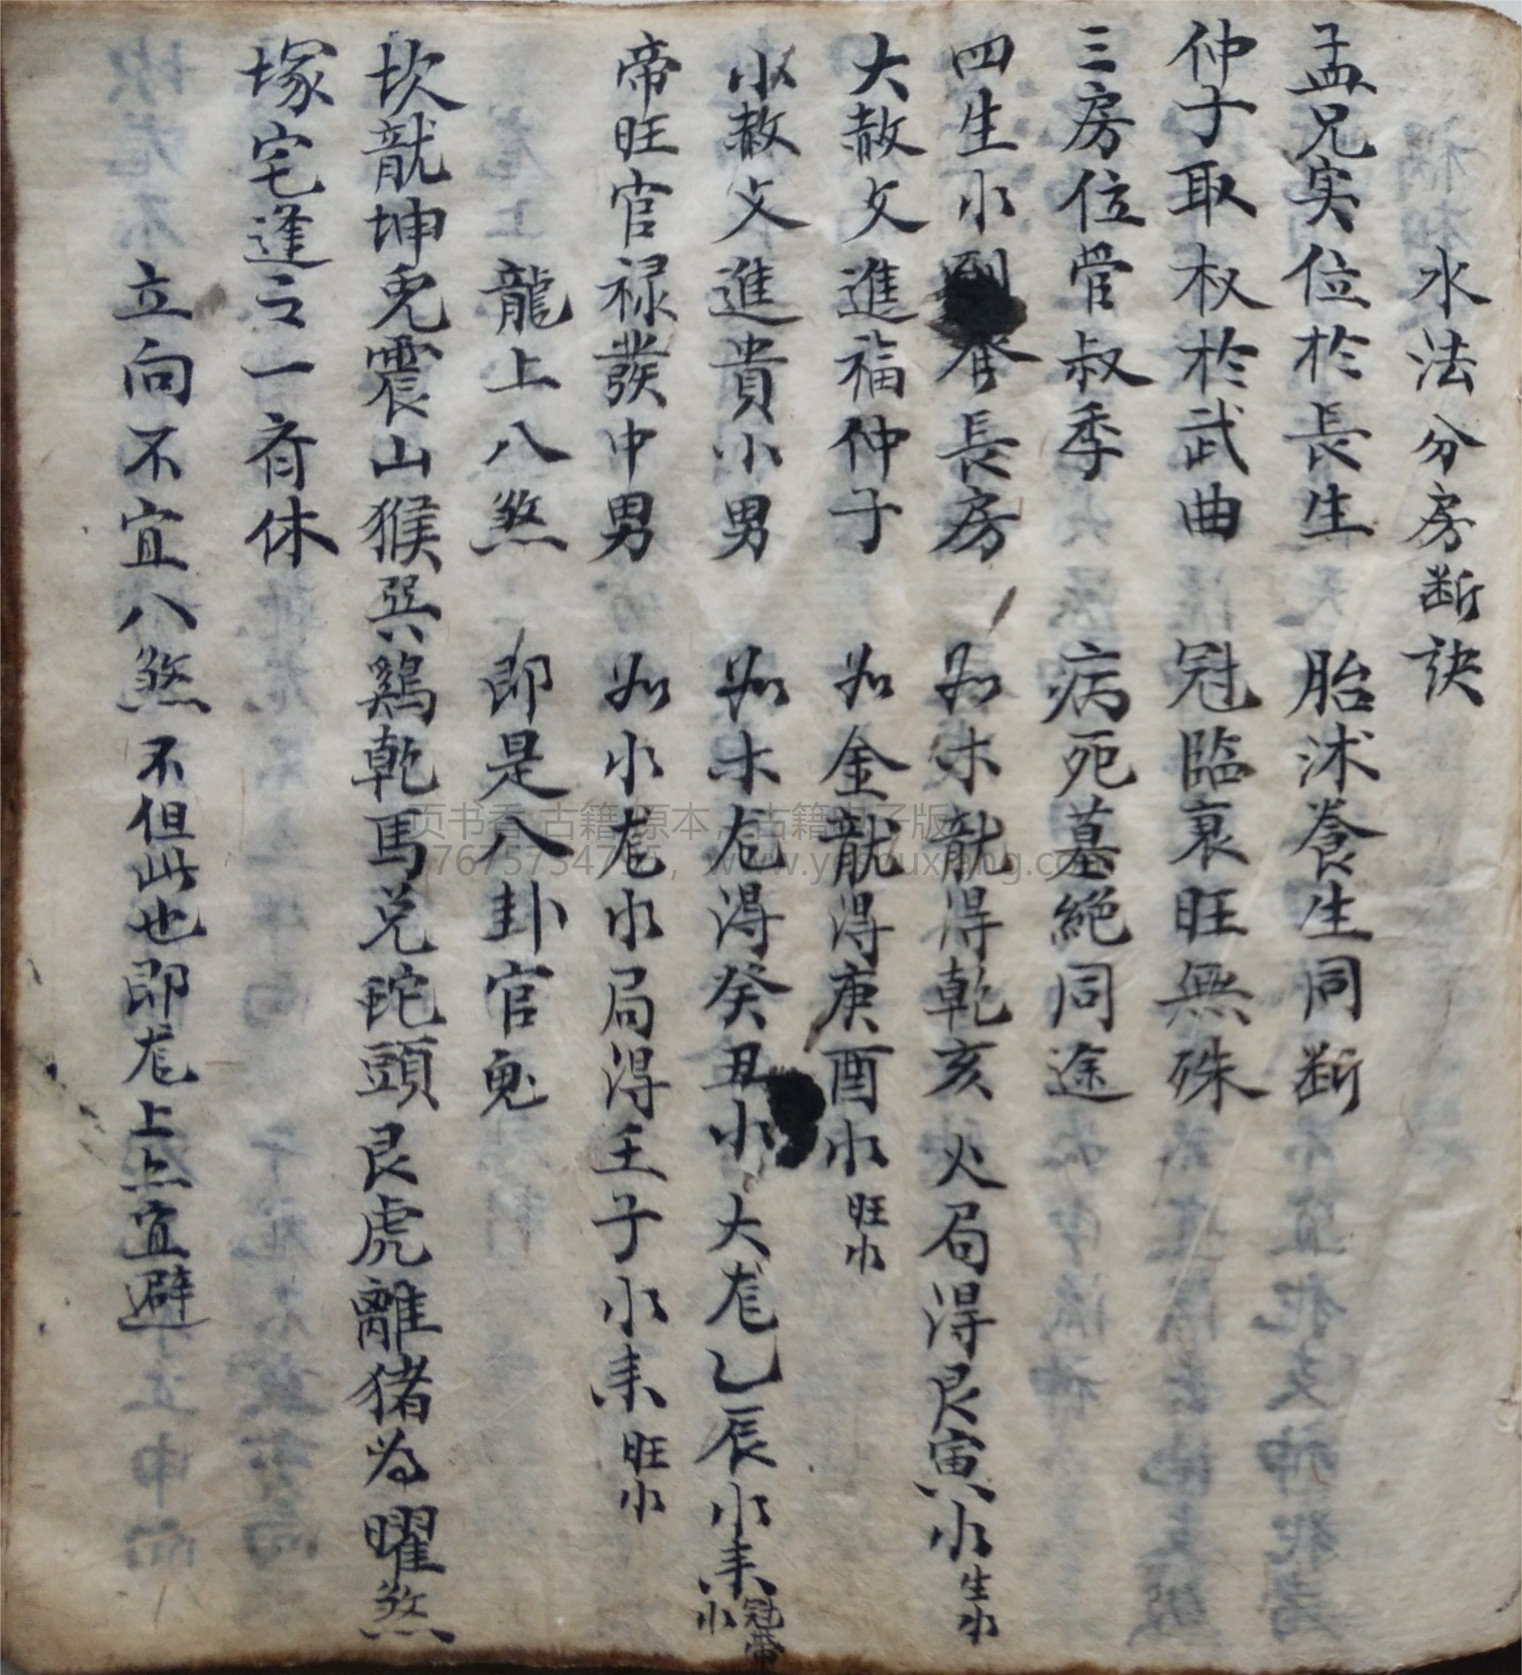 水法分房断訣
孟兄实位於長生 胎沭養生同断
仲子取权於武曲 冠臨衰旺無殊
三房位管叔季 病死墓絶同途
四生水到 長房 如木龍得乾亥 火局得艮寅水 生水
大赦文進福仲子 如金龍得庚酉水 旺水
小赦文進貴小男 如木龙得癸丑水 大龙乙辰水来 冠帶水
帝旺官禄發中男 如水龙水局得壬子水来 旺水
龍上八煞 即是八卦官鬼
坎龍坤兎震山猴巽鷄乾馬兑蛇頭艮虎離猪为曜煞
塚宅逢之一斉休
立向不宜八煞 不但此也即龙上上宜避
页书香 古籍 原本 古籍电子版